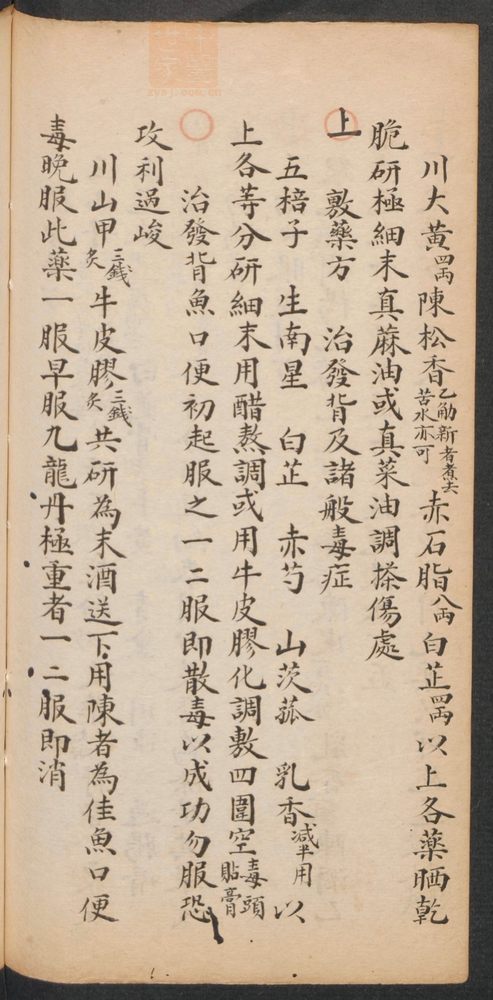 川大黃四両陳松香乙觔新者煮去苦水亦可赤石脂八両白芷四両以上各藥晒乾
脆研極細末真蔴油或真菜油調搽傷處
上 敷藥方 治發背及諸般毒症
五棓子 生南星 白芷 赤芍 山茨菰 乳香減半用 以
上各等分研細末用醋熬調或用牛皮膠化調敷四圍空毒頭貼膏
治發背魚口便初起服之一二服即散毒以成功勿服恐
攻利過峻
川山甲三錢炙牛皮膠三錢炙共研為末酒送下用陳者為佳魚口便
毒晚服此藥一服早服九龍丹極重者一二服即消